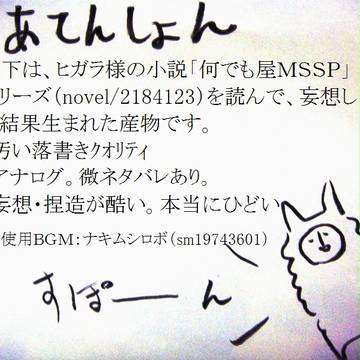 あてんしょん
下は、ヒガラ様の小説「何でも屋MSSP」
リーズ(novel/2184123)を読んで、妄想し
結果生まれた産物です。
汚い落書きクオリティ
アナログ。微ネタバレあり。
妄想・捏造が酷い。本当にひどい
使用BGM:ナキムシロボ(sm19743601)
すぽーん